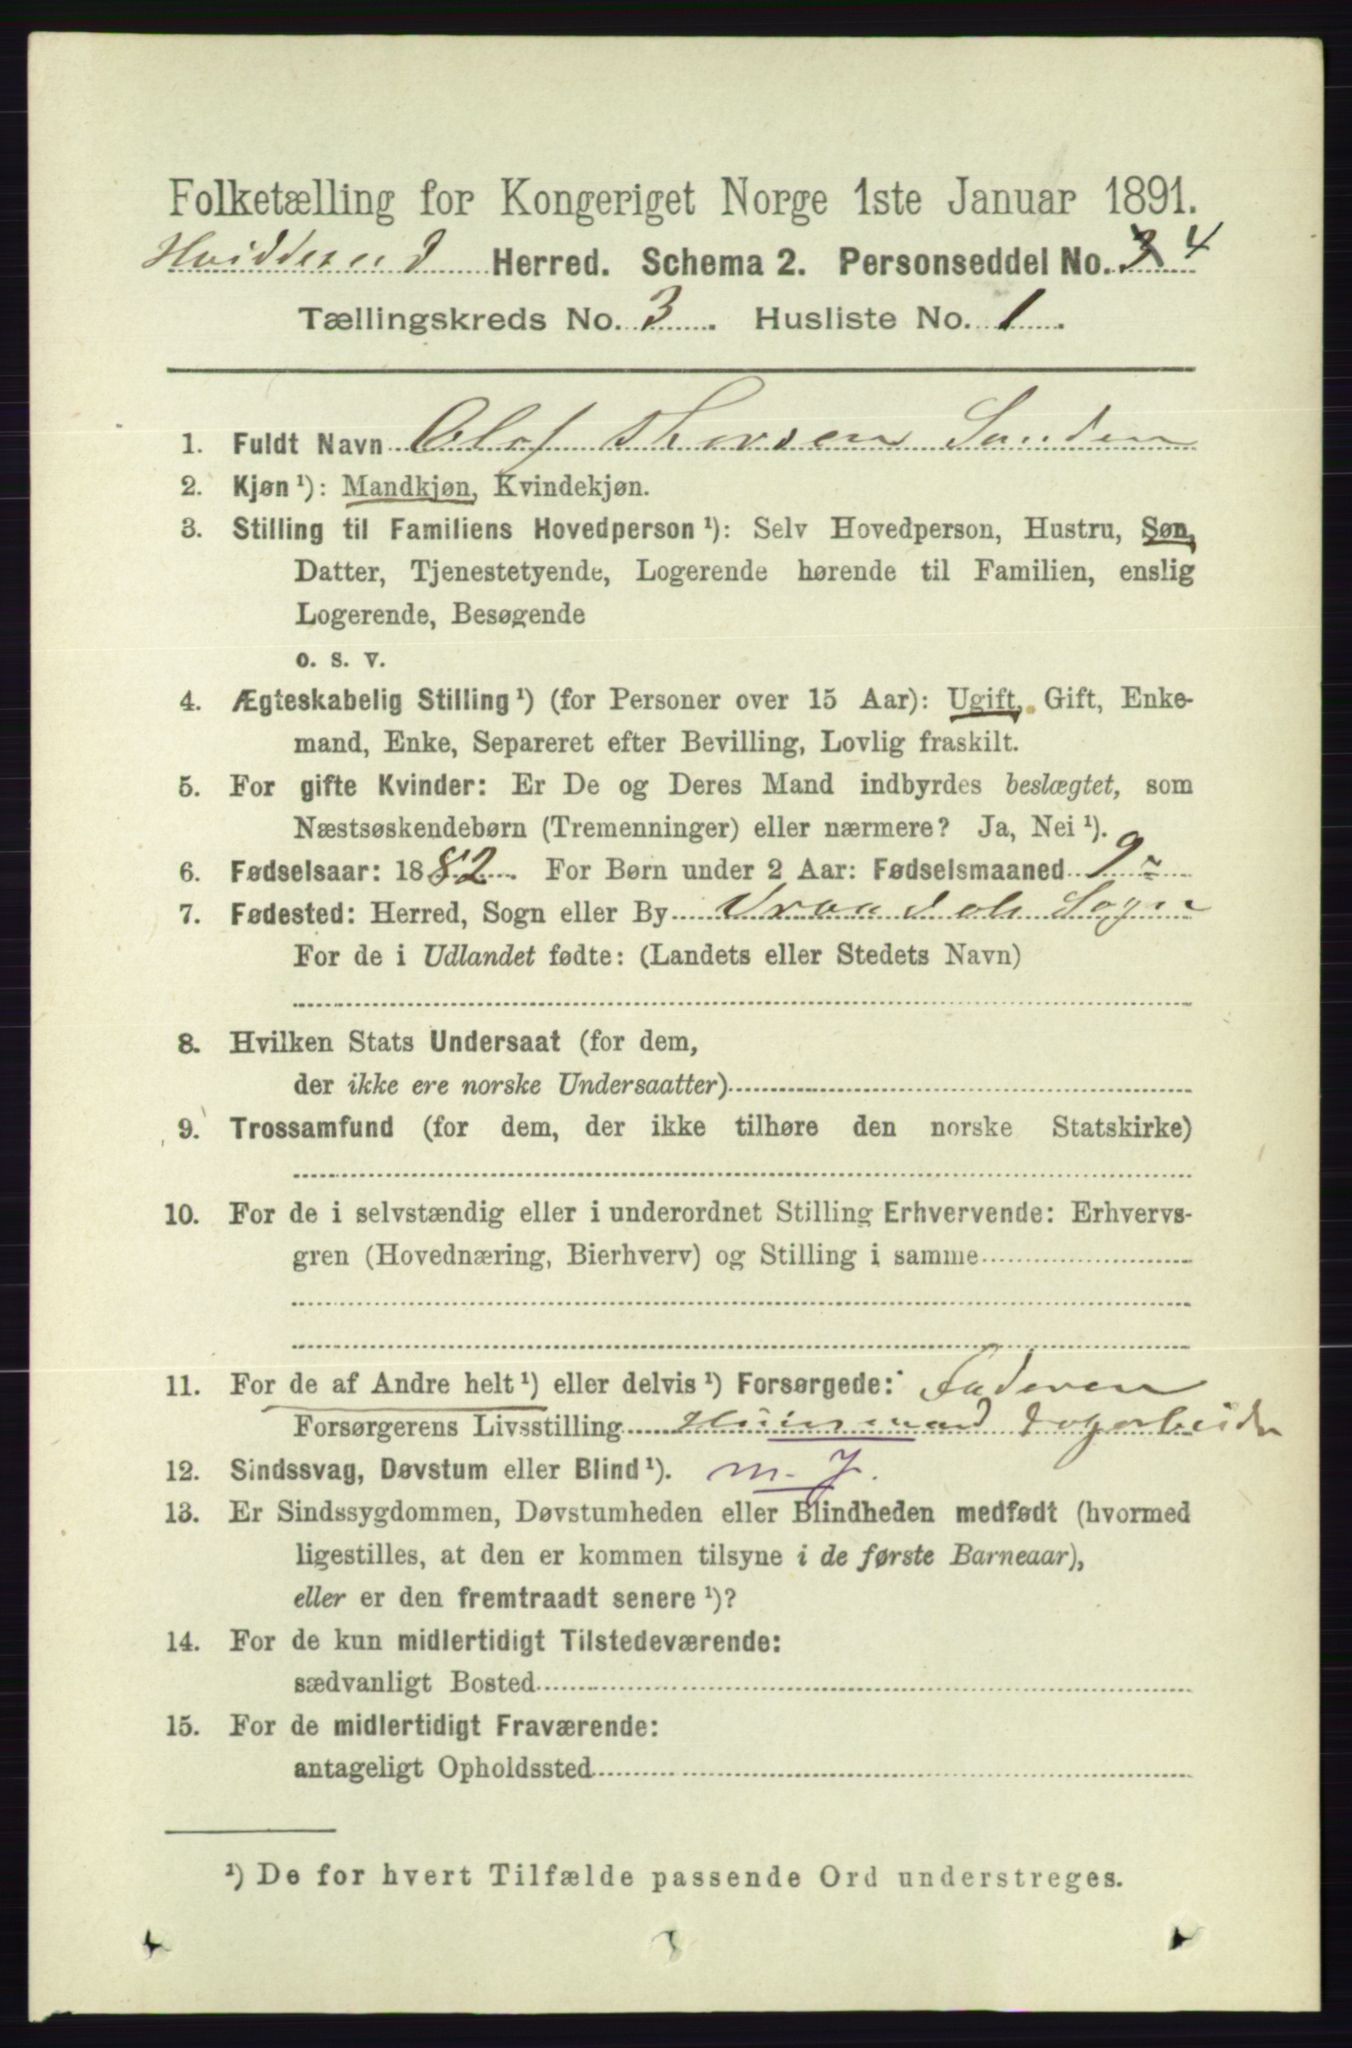 Folketælling for Kongeriget Norge 1ste Januar 1891.
Hviddeseid Herred. Schema 2. Personseddel No. 3 4
Tællingskreds No. 3. Husliste No. 1.
1. Fuldt Navn Olaf Thorsen Sanden
2. Kjøn ¹): Mandkjøn, Kvindekjøn.
3. Stilling til Familiens Hovedperson ¹): Selv Hovedperson, Hustru, Søn,
Datter, Tjenestetyende, Logerende hørende til Familien, enslig
Logerende, Besøgende
o. s. v.
4. Ægteskabelig Stilling ¹) (for Personer over 15 Aar): Ugift, Gift, Enke-
mand, Enke, Separeret efter Bevilling, Lovlig fraskilt.
5. For gifte Kvinder: Er De og Deres Mand indbyrdes beslægtet, som
Næstsøskendebørn (Tremenninger) eller nærmere? Ja, Nei ¹).
6. Fødselsaar: 1882. For Børn under 2 Aar: Fødselsmaaned 9
7. Fødested: Herred, Sogn eller By Vraadals Sogn
For de i Udlandet fødte: (Landets eller Stedets Navn)
8. Hvilken Stats Undersaat (for dem,
der ikke ere norske Undersaatter)
9. Trossamfund (for dem, der ikke tilhøre den norske Statskirke)
10. For de i selvstændig eller i underordnet Stilling Erhvervende: Erhvervs-
gren (Hovednæring, Bierhverv) og Stilling i samme
11. For de af Andre helt ¹) eller delvis ¹) Forsørgede: Faderen
Forsørgerens Livsstilling Huusmand Dagarbeider
12. Sindssvag, Døvstum eller Blind ¹). m. J.
13. Er Sindssygdommen, Døvstumheden eller Blindheden medfødt (hvormed
ligestilles, at den er kommen tilsyne i de første Barneaar),
eller er den fremtraadt senere ¹)?
14. For de kun midlertidigt Tilstedeværende:
sædvanligt Bosted
15. For de midlertidigt Fraværende:
antageligt Opholdssted
¹) De for hvert Tilfælde passende Ord understreges.